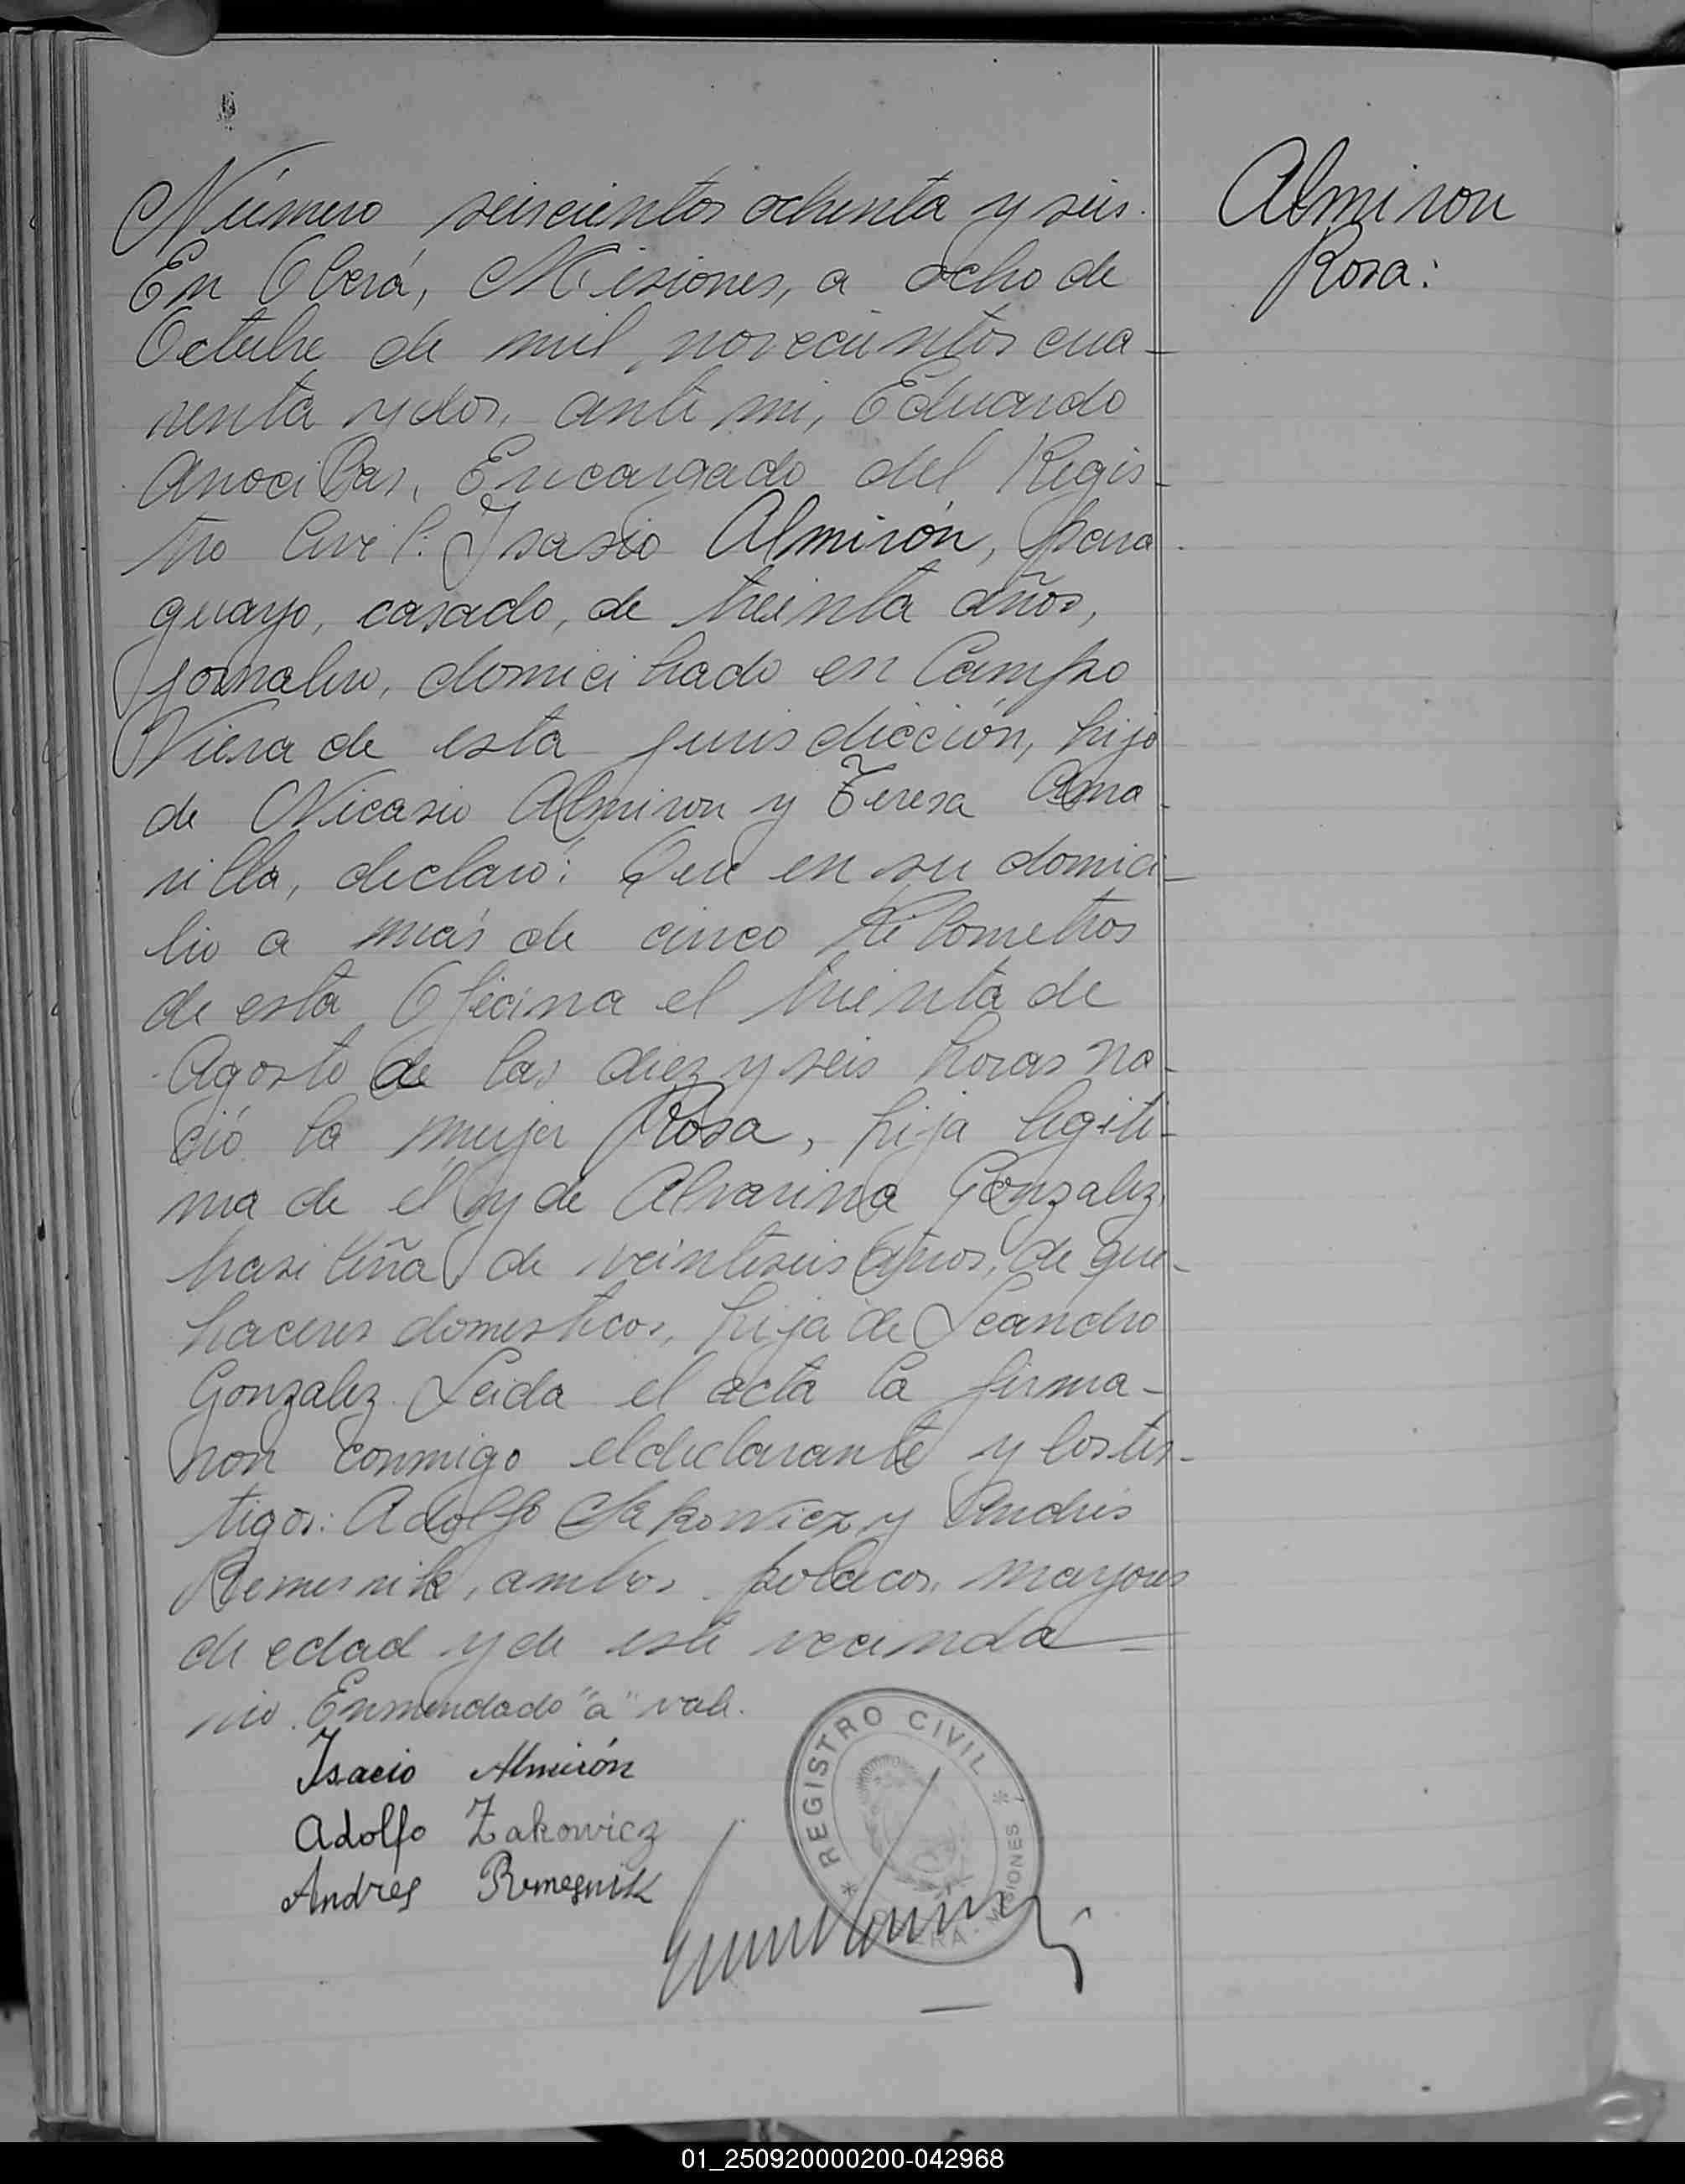 Número seiscientos ochenta y seis.
Almiron
Rosa:
En Oberá, Misiones, a ocho de
Octubre de mil novecientos cua-
renta y dos, ante mi, Eduardo
Anocibar, Encargado del Regis-
tro Civil: Isasio Almirón, para-
guayo, casado, de treinta años,
jornalero, domiciliado en Campo
Viera de esta jurisdicción, hijo
de Nicasio Almiron y Teresa Ama-
rilla, declaró: Que en su domici-
lio a más de cinco kilometros
de esta Oficina el treinta de
Agosto de las diez y seis horas na-
ció la mujer Rosa, hija legiti-
ma de él y de Alvarina Gonzalez,
brasileña, de veintiseis años, de que-
haceres domesticos, hija de Leandro
Gonzalez. Leida el acta la firma-
ron conmigo el declarante y los tes-
tigos: Adolfo Zakowicz y Andrés
Remesnik, ambos polacos, mayores
de edad y de este vecinda-
rio. Enmendado "a" vale.
Isacio Almirón
Adolfo Zakowicz
Andrés Remesnik
REGISTRO CIVIL
OBERA - MISIONES
01_250920000200-042968